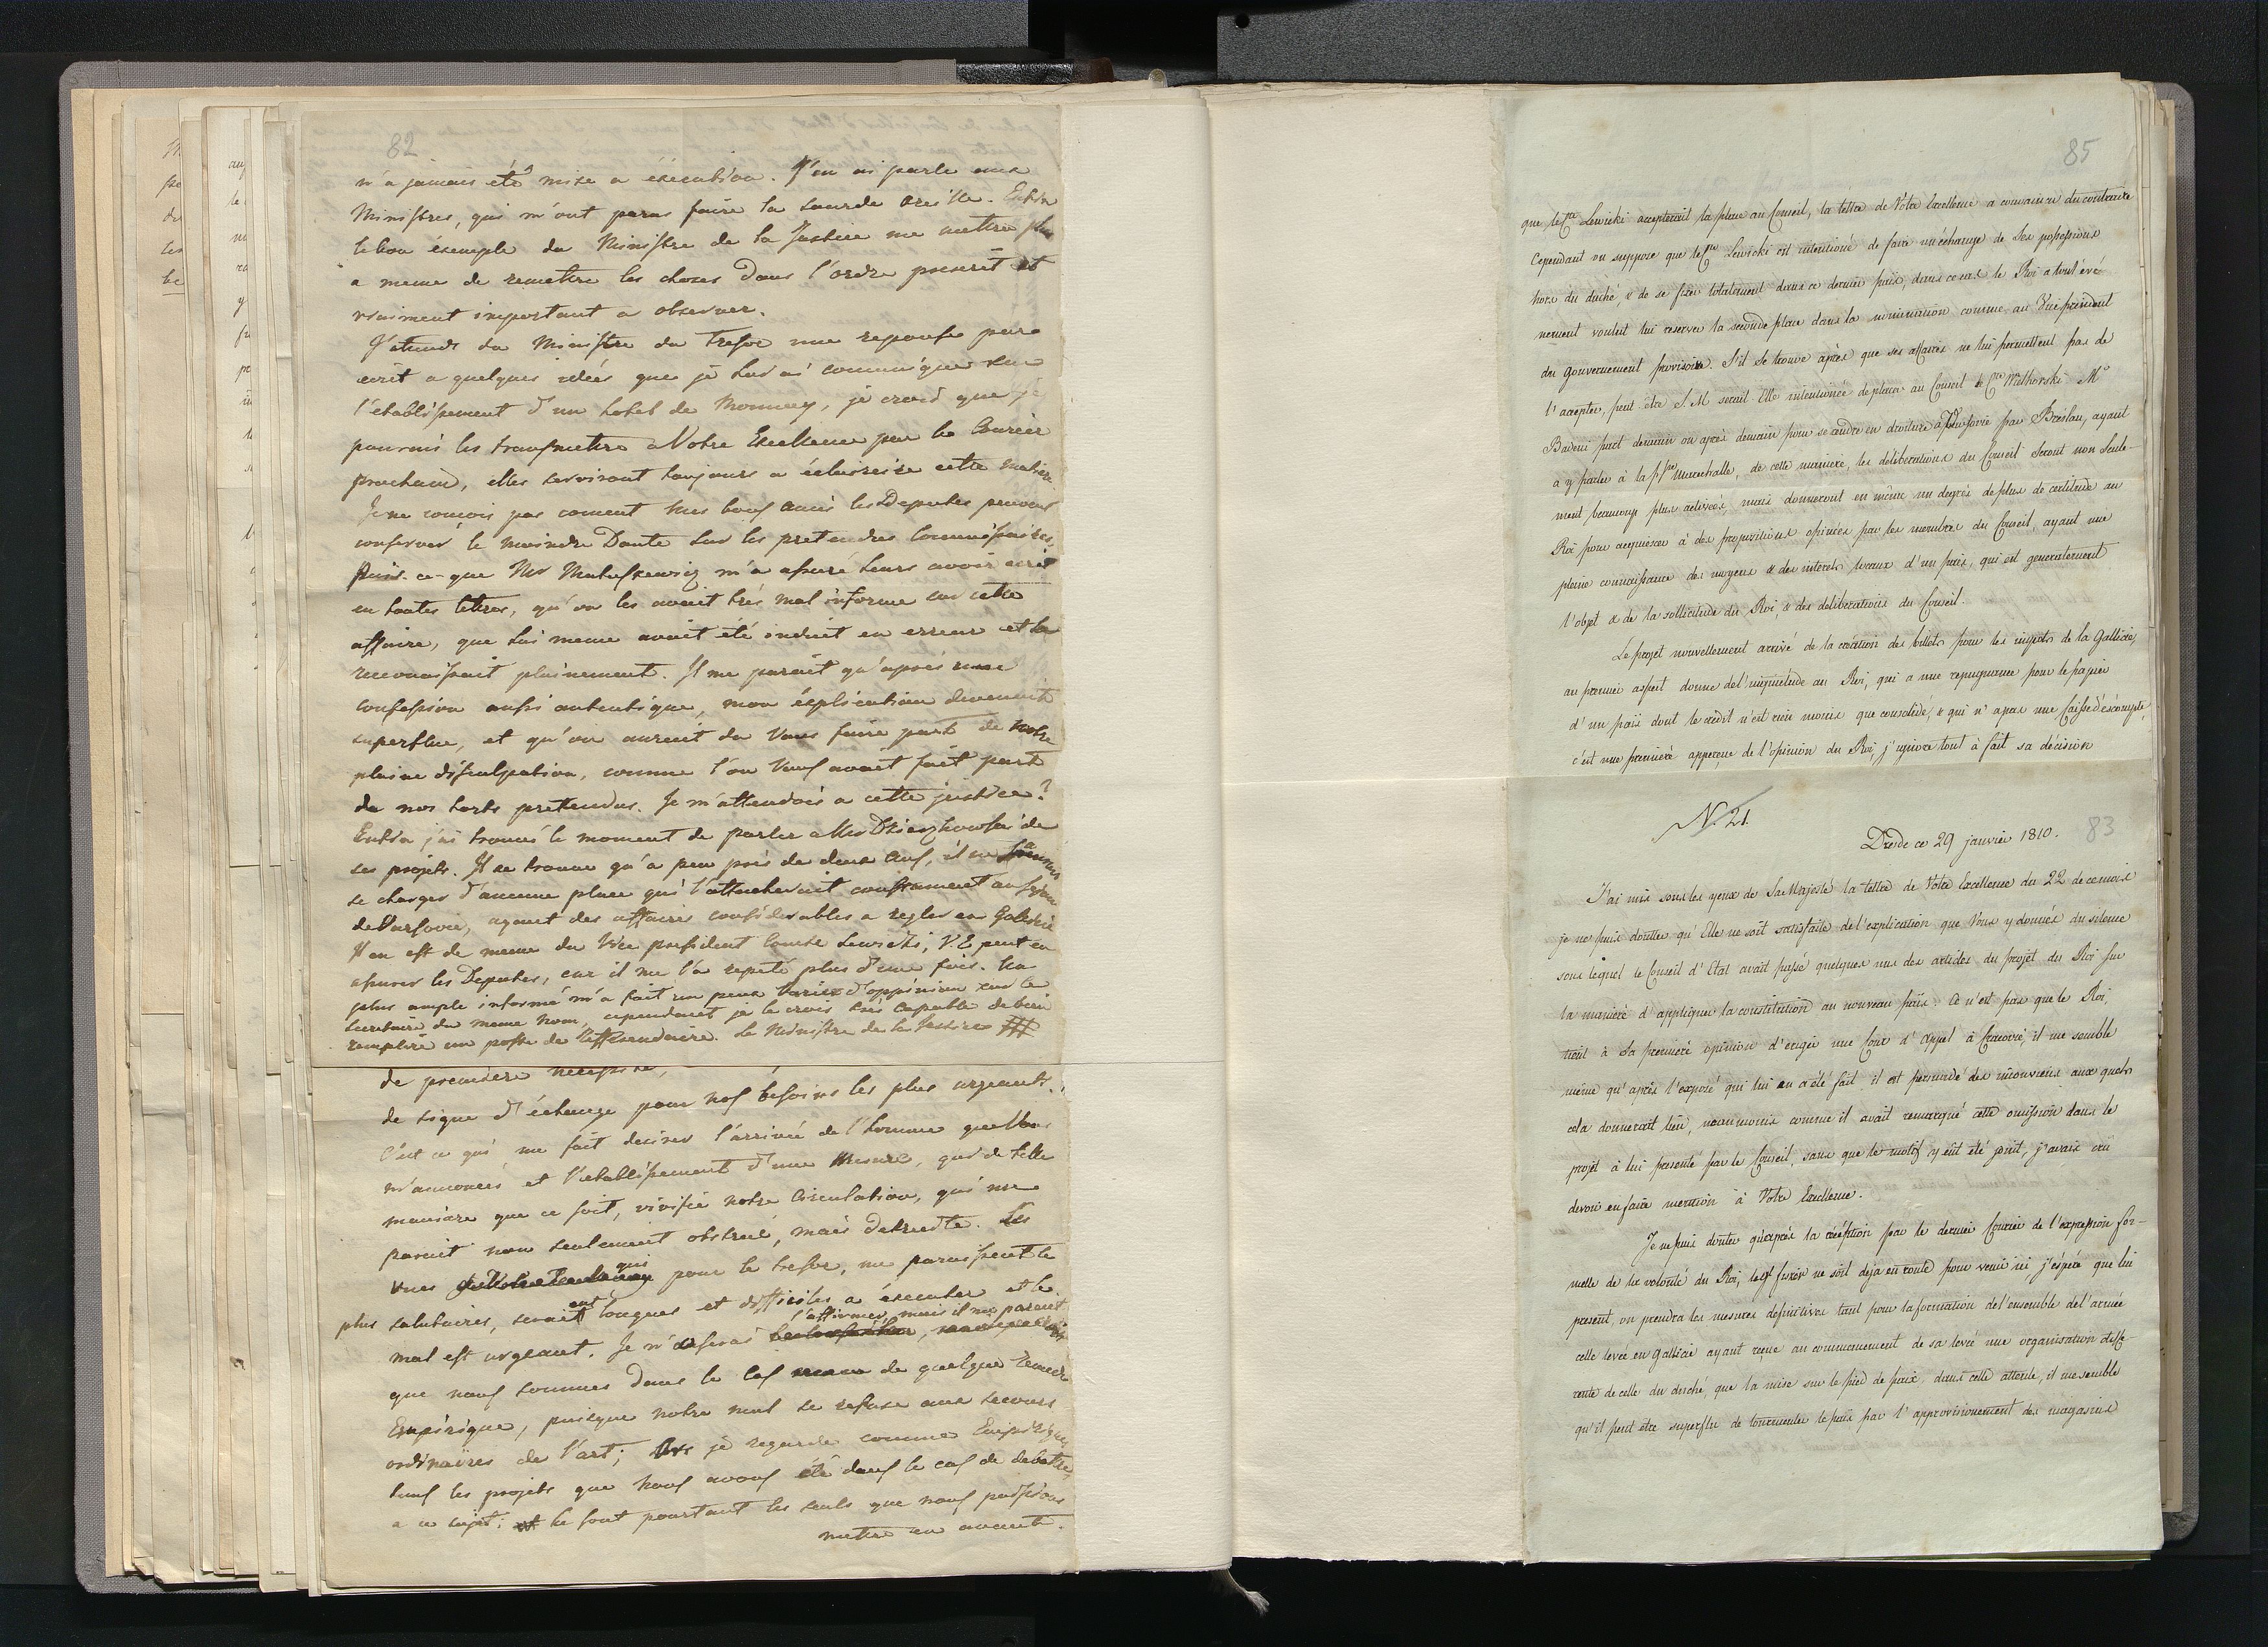 82
n'a jamais été mise a éxécution. J'en ai parlé aux
Ministres, qui m'ont parus faire la sourde oreille. Enfin
le bon éxemple du Ministre de la Justice me mettra plus
a meme de remettre les choses dans l'ordre prescrit et
vraiment important a observer.
J'attends du Ministre du Tresor une reponse par
ecrit a quelques idées que je lui ai comuniqué sur
l'etablissement d'un hotel de Monnoy, je crois que je
pourrais les transmettre a Votre Excellence par le Courier
prochain, elles serviront toujours a éclaircire cette matiere
Je ne conçois pas coment nos bons amis les Deputés peuvent
conserver le moindre Doute sur les pretendus Commissaires,
puis-ce-que Mr Matuszewicz m'a assuré leurs avoir ecrit
en toutes lettres, qu'on les avait très mal informé sur cette
affaire, que lui meme avait été induit en erreur et le
reconaissait plainement. Il me parait qu'après une
confession aussi autentique, mon éxplication devenait
superflue, et qu'on aurait du Vous faire part de notre
plaine disculpation, comme l'on Vous avait fait part
de nos torts pretendus. Je m'attendois a cette justice?
Enfin j'ai trouvé le moment de parler a Mr Dzierzkowski de
ses projets. Il se trouve qu'a peu près de deux ans, il ne
se charger d'aucune place qui l'attacherait constament au sejour
de Varsovie, ayant des affaires considerables a regler en Galicie
Il en est de meme du Vice president Comte Lewicki, V.E peut en
assurer les Deputés, car il me l'a repeté plus d'une fois. Un
plus ample informé m'a fait un peux varier d'oppinion sur le
Secretaire du meme nom, cependant je le crois très capable de bien
remplire un poste de Refferendaire. Le Ministre de la Justice
de premiere necessité,
de signe d'échange pour nos besoins les plus urgeants.
C'est ce qui me fait desirer l'arrivée de l'homme que Vous
m'annoncés et l'etablissement d'une Mesure, qui de telle
maniere que ce soit, vivifie notre Circulation, qui me
parait non seulement obstrué, mais detruite. Les
vues qui pour le tresor, me paraissent le
plus salutaires, seraient longues et difficiles a éxecuter et le
l'affirmer, mais il me parait
mal est urgeant. Je n'oserai
que nous sommes dans le cas de quelque remede
Empirique, puisque notre mal se refuse aux secours
ordinaires de l'art; je regarde comme Empirique
tous les projets que nous avons été dans le cas de debattre
a ce sujet; ce sont pourtant les seuls que nous puissions
mettre en avant.
85
que le Cte Lewicki accepterait la place au Conseil, la lettre de Votre Excellence a convaincu du contraire
Cependant on suppose que le Cte Lewicki est intentionné de faire un échange de ses possessions
hors du duché, & de se fixer totalement dans ce dernier païs, dans ce cas le Roi a tout évé-
nement voulut lui reserver la seconde place dans la nomination comme au Vice président
du gouvernement provisoire. S'il se trouve après que ses affaires ne lui permettent pas de
l'accepter, peut être S.M serait Elle intentionnée de placer au Conseil le Cte Wielhorski. Mr
Badeni part demain ou après demain pour se rendre en droiture à Varsovie par Breslau, ayant
a y parler à la Psse Marechalle, de cette manière, les deliberations du Conseil seront non seule-
ment beaucoup plus activées, mais donneront en même un degrès de plus de certitude au
Roi pour acquiescer à des propositions opinées par les membres du Conseil, ayant une
pleine connaissance des moyens & des interets locaux d'un païs, qui est generalement
l'objet & de la sollicitude du Roi, & des deliberations du Conseil.
Le projet nouvellement arrivé de la création des billets pour les impots de la Gallicie,
au premier aspect donne de l'inquietude au Roi, qui a une repugnance pour le papier
d'un païs dont le crédit n'est rien moins que consolidé, & qui n'a pas une Caisse d'escompte,
c'est une première apperçue de l'opinion du Roi, j'ignore tout à fait sa décision
N. 21.
83
Dresde ce 29 janvier 1810.
J'ai mis sous les yeux de Sa Majesté la lettre de Votre Excellence du 22 de ce mois
je ne puis doutter qu'Elle ne soit satisfaite de l'explication que Vous y donnés du silence
sous lequel le Conseil d'Etat avait passé quelques uns des articles du projet du Roi sur
la manière d'appliquer la constitution au nouveau païs. Ce n'est pas que le Roi,
tient à sa première opinion d'eriger une Cour d'Appel à Cracovie, il me semble
même qu'après l'exposé qui lui en a été fait il est persuadé des inconveniens aux quels
cela donnerait lieu, néanmoins comme il avait remarqué cette omission dans le
projet à lui presenté par le Conseil, sans que le motif y eût été joint, j'avais crû
devoir en faire mention à Votre Excellence.
Je ne puis douter qu'après la réception par le dernier Courier de l'expression for-
melle de la volonté du Roi, le Gl Fiszer ne soit deja en route pour venir ici, j'éspère que lui
present, on prendra les mesures definitives tant pour la formation de l'ensemble de l'armée
celle levée en Gallicie ayant reçue au commencement de sa levée une organisation diffé-
rente de celle du duché, que la mise sur le pied de paix. dans cette attente, il me semble
qu'il peut être superflu de tourmenter le païs par l'approvisionement des magasins